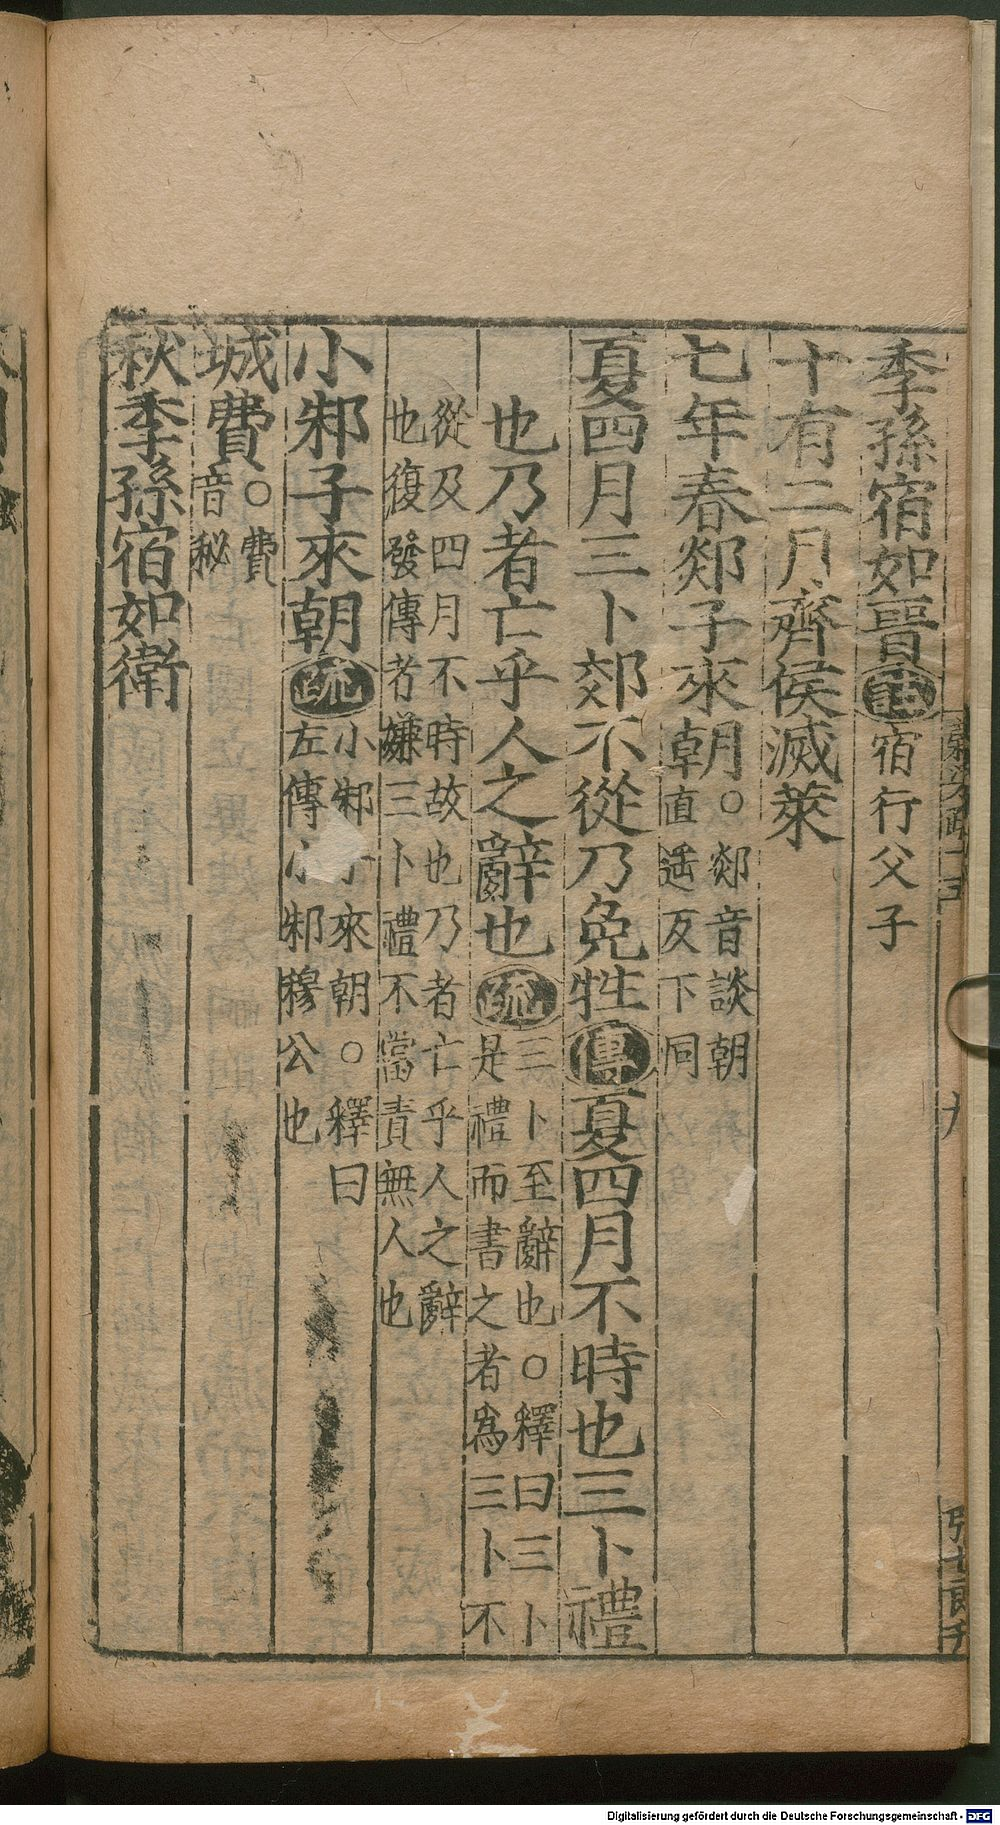 季孫宿如晉註宿行父子
十有二月齊侯滅萊
七年春郯子來朝○郯音談朝
直遥反下同
夏四月三卜郊不從乃免牲傳夏四月不時也三卜禮
也乃者亡乎人之辭也疏三卜至辭也○釋曰三卜
是禮而書之者為三卜不
從及四月不時故也乃者亡乎人之辭
也復發傳者嫌三卜禮不當責無人也
小邾子來朝疏小邾子來朝○釋曰
左傳小邾穆公也
城費○費
音秘
秋季孫宿如衛
Digitalisierung gefördert durch die Deutsche Forschungsgemeinschaft - DFG